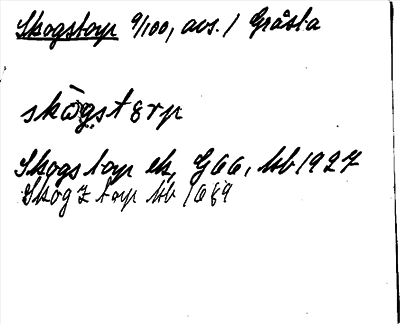 Skogstorp 9/100, avs. / Gråsta
skògstɛrp
Skogstorp ek, G66, Jdb 1927
Skog z torp Jdb 1689